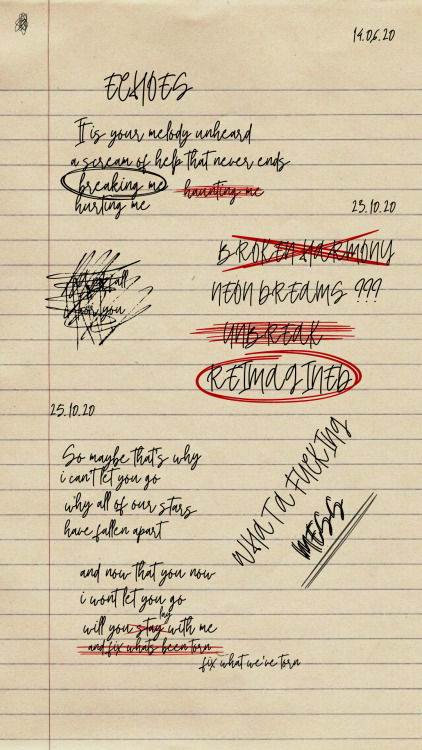 14.06.20
ECHOES
It is your melody unheard
a scream of help that never ends
breaking me haunting me
hurting me
23.10.20
BROKEN HARMONY
NEON DREAMS ???
fall
upon you
UNBREAK
REIMAGINED
25.10.20
So maybe that's why
i can't let you go
why all of our stars
have fallen apart
WHAT A FUCKING
MESS
and now that you now
i wont let you go
lay
will you stay with me
and fix whats been torn
fix what we've torn